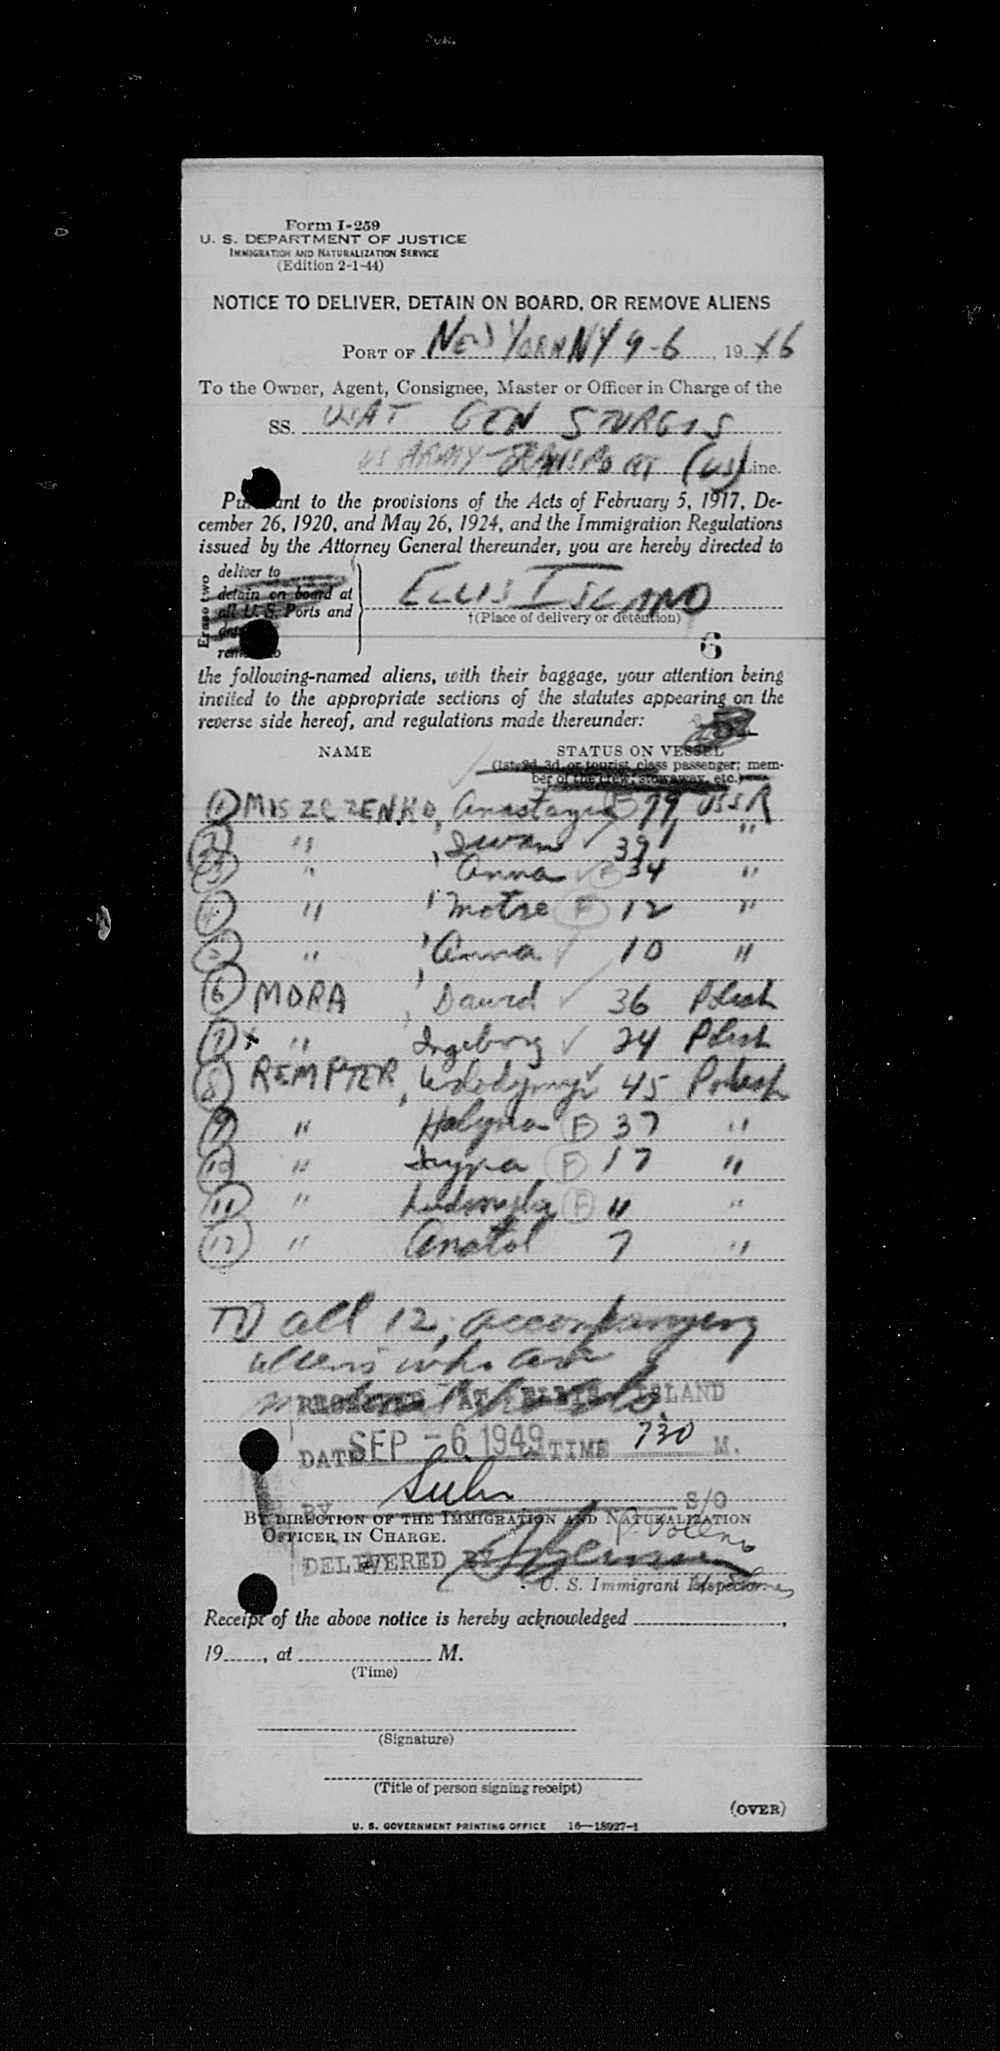 Form I-259
U. S. DEPARTMENT OF JUSTICE
IMMIGRATION AND NATURALIZATION SERVICE
(Edition 2-1-44)
NOTICE TO DELIVER, DETAIN ON BOARD, OR REMOVE ALIENS
PORT OF NEW YORK NY 9-6, 19
To the Owner, Agent, Consignee, Master or Officer in Charge of the
SS. USAT GEN STURGIS
US ARMY TRANSPORT (US) Line.
Pursuant to the provisions of the Acts of February 5, 1917, De-
cember 26, 1920, and May 26, 1924, and the Immigration Regulations
issued by the Attorney General thereunder, you are hereby directed to
Erase two
deliver to
detain on board at
all U. S. Ports and
remove to
ELLIS ISLAND
†(Place of delivery or detention)
6
the following-named aliens, with their baggage, your attention being
invited to the appropriate sections of the statutes appearing on the
reverse side hereof, and regulations made thereunder:
NAME STATUS ON VESSEL
(1st, 2d, 3d, or tourist class passenger; mem-
ber of the crew, stowaway, etc.)
1 MISZCZENKO, Anastazia F 79 USSR
2 " , Iwan ✓ 39 "
3 " , Anna ✓ F 34 "
4 " , Motre F 12 "
5 " , Anna ✓ 10 "
6 MORA , Dawid ✓ 36 Polish
7 x " , Ingeborg ✓ 24 Polish
8 REMPTER, Wolodymyr ✓ 45 Polish
9 " Halyna F 37 "
10 " F 17 "
11 " Ludmyla F 11 "
12 " Anatol 7 "
TO all 12, accompanying
aliens who are
RECEIVED AT ELLIS ISLAND
DATE SEP - 6 1949 TIME 730 M.
BY S/O
BY DIRECTION OF THE IMMIGRATION AND NATURALIZATION
OFFICER IN CHARGE.
DELIVERED BY
U. S. Immigrant Inspector.
Receipt of the above notice is hereby acknowledged ,
19 , at M.
(Time)
(Signature)
(Title of person signing receipt)
(OVER)
U. S. GOVERNMENT PRINTING OFFICE 16—18927-1